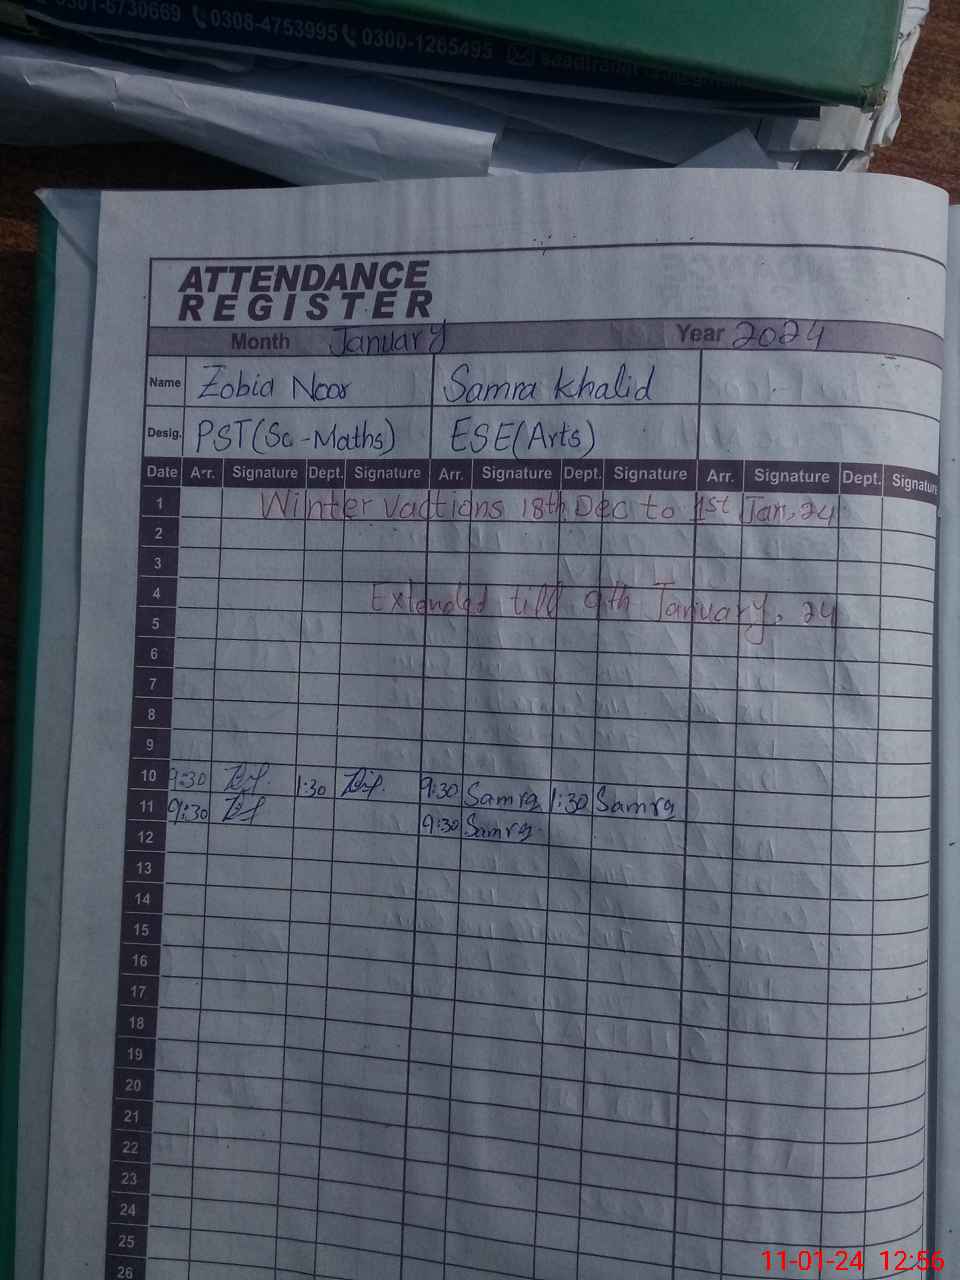 0301-8730669 0308-4753995 0300-1265495
ATTENDANCE
REGISTER
Month January Year 2024
Name Zobia Noor Samra Khalid
Desig. PST(Sc-Maths) ESE(Arts)
Date Arr. Signature Dept. Signature Arr. Signature Dept. Signature Arr. Signature Dept. Signature
1 Winter vactions 18th Dec to 1st Jan, 24
2
3
4 Extended till 9th January, 24
5
6
7
8
9
10 9:30 1:30 9:30 Samra 1:30 Samra
11 9:30 9:30 Samra
12
13
14
15
16
17
18
19
20
21
22
23
24
25
26
11-01-24 12:56